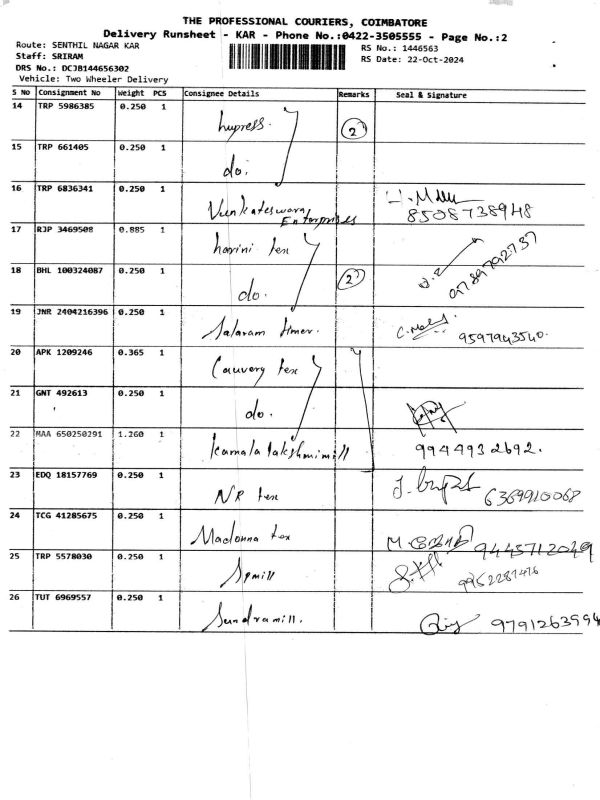 THE PROFESSIONAL COURIERS, COIMBATORE
Delivery Runsheet - KAR - Phone No.:0422-3505555 - Page No.:2
Route: SENTHIL NAGAR KAR
RS No.: 1446563
Staff: SRIRAM
RS Date: 22-Oct-2024
DRS No.: DCJB144656302
Vehicle: Two Wheeler Delivery
S No Consignment No Weight PCS Consignee Details Remarks Seal & Signature
14 TRP 5986385 0.250 1
2
15 TRP 661405 0.250 1 do.
16 TRP 6836341 0.250 1 Venkateswara Enterprises 8508738948
17 RJP 3469508 0.885 1 harini tex
18 BHL 100324087 0.250 1 do. 2 9789792737
19 JNR 2404216396 0.250 1 Salaram 9597943540.
20 APK 1209246 0.365 1 Cauvery tex
21 GNT 492613 0.250 1 do.
22 MAA 650250291 1.260 1 kamala lakshmi mill 9944932692.
23 EDQ 18157769 0.250 1 NR tex 6369910068
24 TCG 41285675 0.250 1 Madonna tex 9445712049
25 TRP 5578030 0.250 1 Spmill 9952287476
26 TUT 6969557 0.250 1 Sundramill. 9791263994